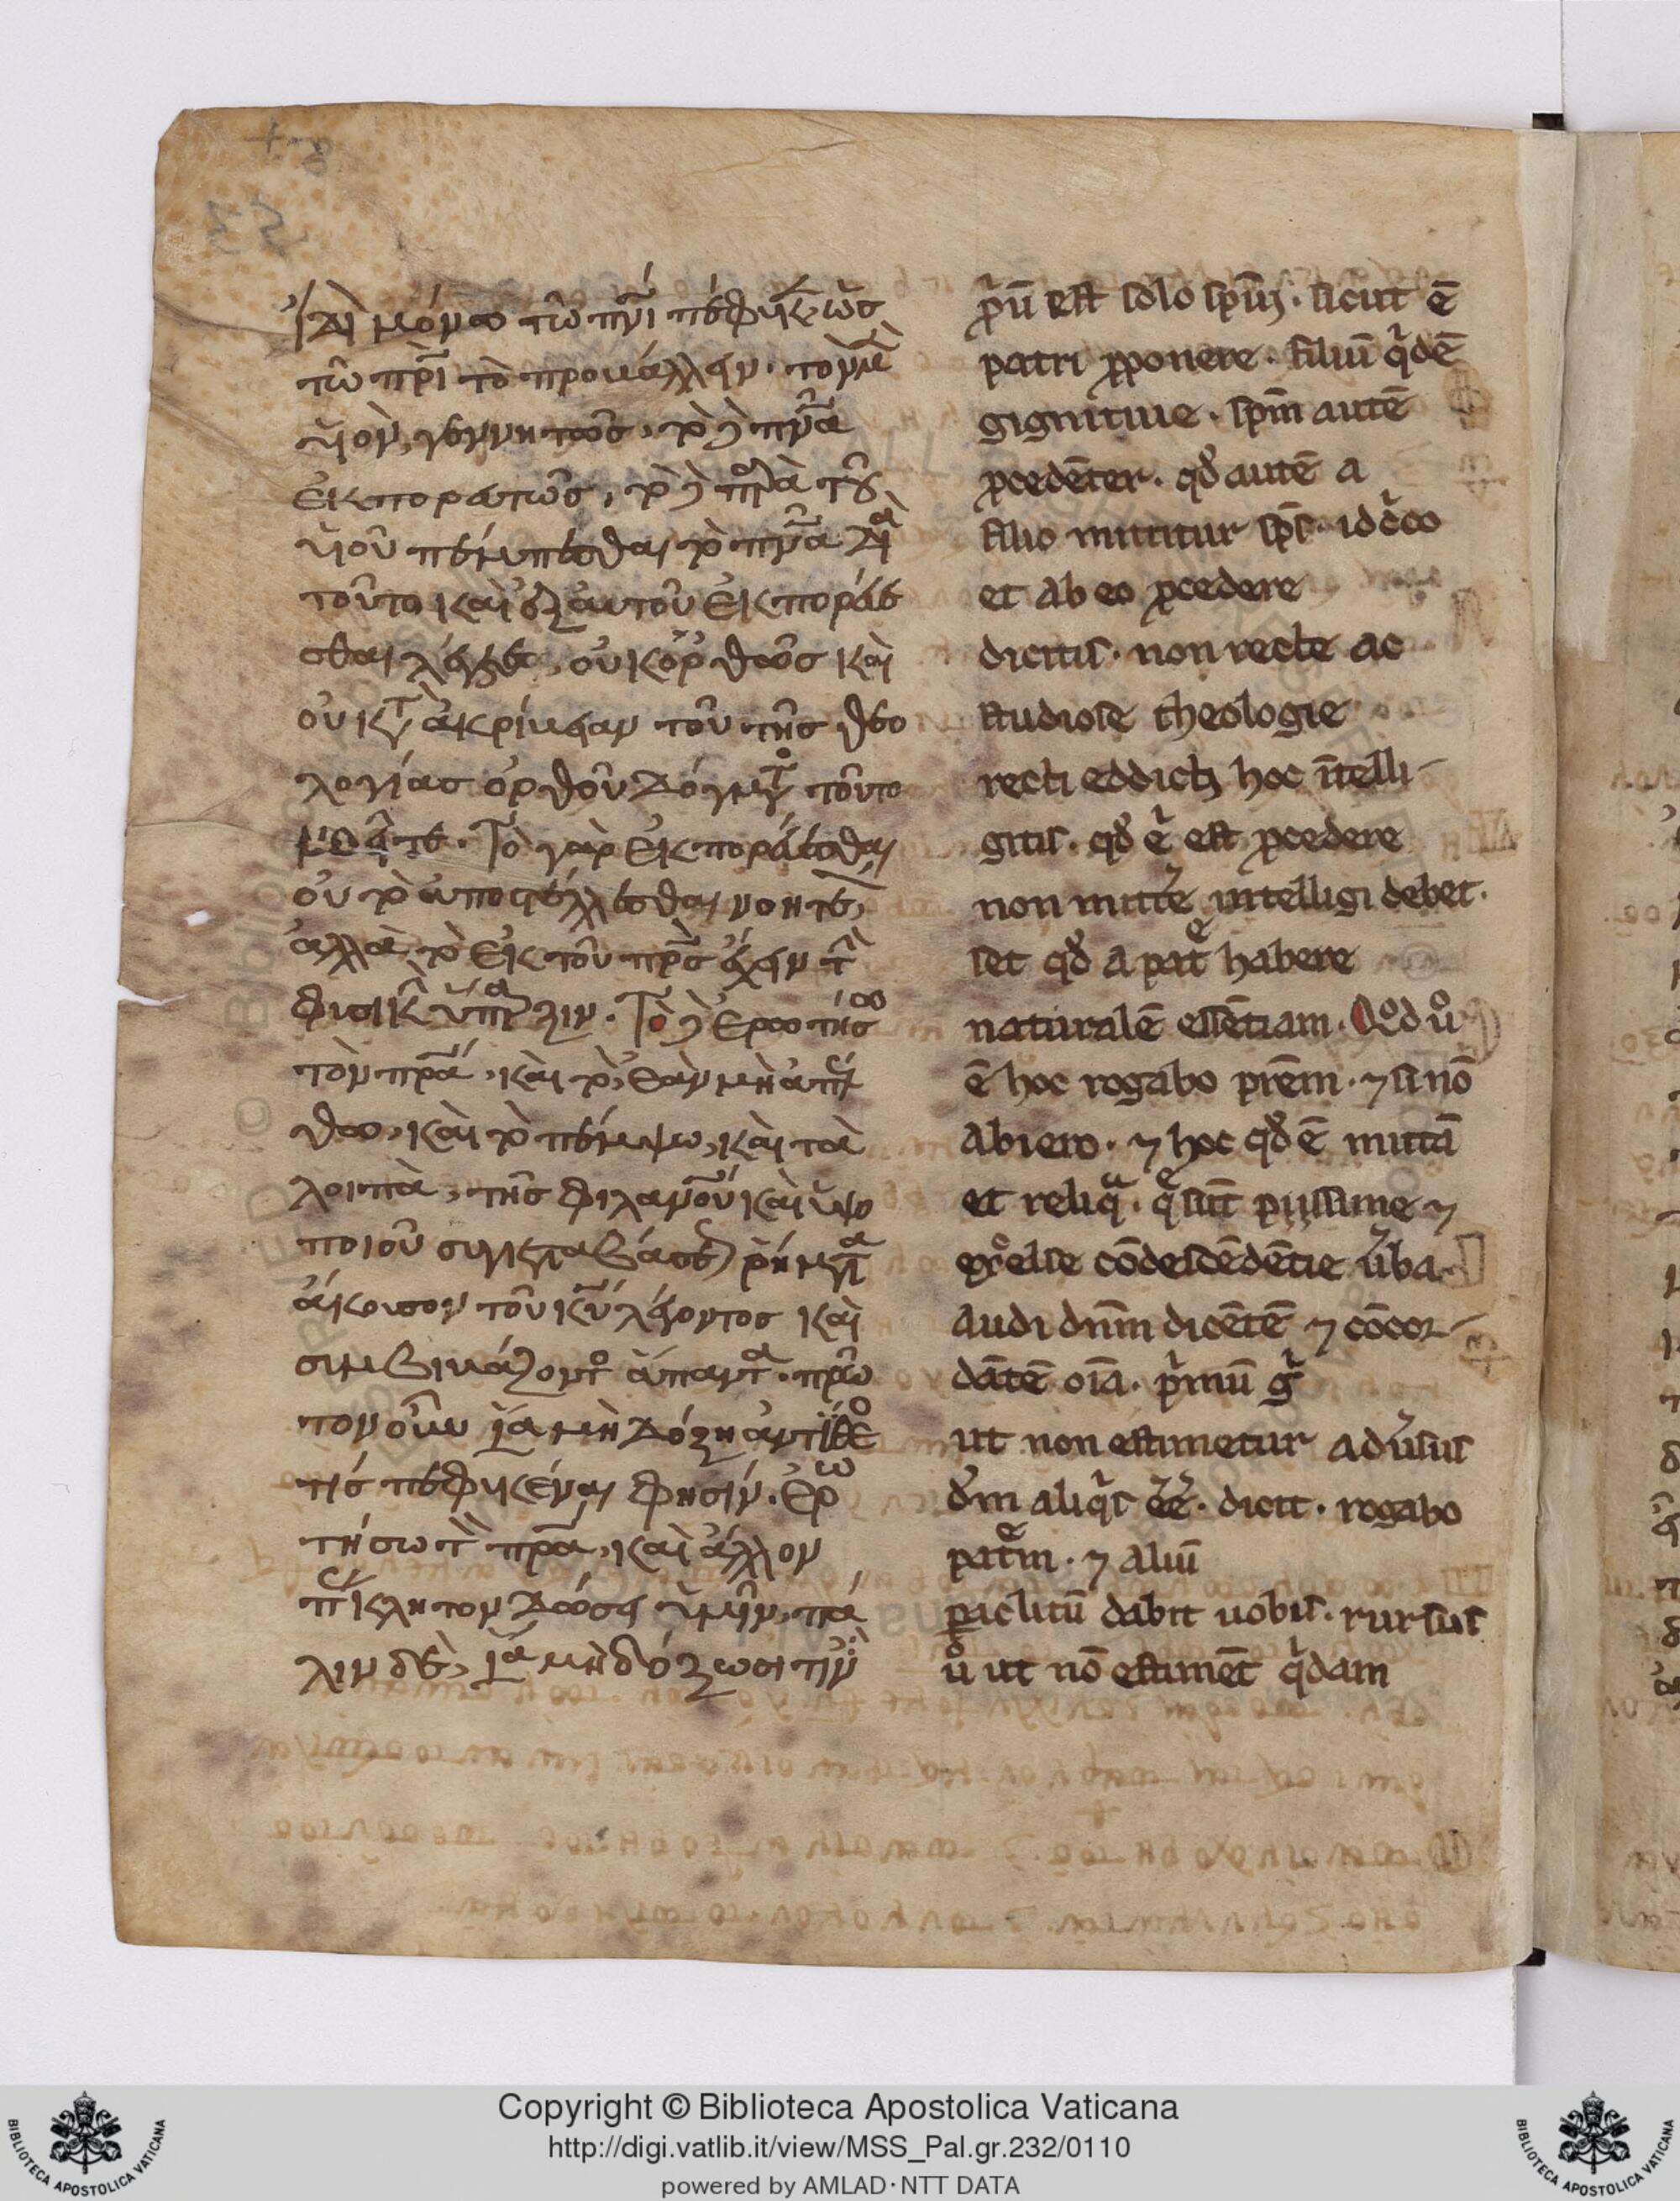 μόνω τῶ πνι πέφυκ ὡς
τῶ πρι τὸ προβάλλειν· τὸν μὲ
υἱὸν, γεννητῶς, τὸ πνα
ἐκπορευτῶς, τὸ
υἱοῦ πέμπεσθαι τὸ πνα
τοῦτο καὶ ἐξ αὐτοῦ ἐκπορεύε
σθαι λέγετε, οὐκ ὀρθῶς καὶ
οὐ κτ ἀκρίβειαν τοῦ τῆς θεο
λογίας ὀρθοῦ δόγμτ τοῦτο
νοεῖτε· Τὸ γὰρ ἐκπορεύεσθαι
οὐ τὸ ἀποστέλλεσθαι νοητέ,
ἀλλὰ τὸ ἐκ τοῦ πρς ἔχειν τ
φυσικ ὕπαρξιν· Τὸ ἐρωτήσω
τὸν πρα, καὶ τὸ, ἐὰν μὴ ἀπέλ
θω, καὶ τὸ πέμψω, καὶ τὰ
λοιπὰ, τῆς φιλανου καὶ ὑψο
ποιοῦ συγκταβάσε ῥήμτα
ἄκουσον τοῦ κυ λέγοντος καὶ
συμβιβάζοντ ἅπαντ· πρῶ
τον οὖν ἵα μὴ δόξη ἀντίθεο
τίς πεφυκέναι φησίν· ἐρω
τήσω τ πρα, καὶ ἄλλον
πκλητον δώσει ὑμῖν, πά
λιν δὲ, ἵα μὴ δόξωσι τιν
pͥū est solo spūj. sicut ē
patri ꝓponere. filiū qͥdē
gignitiue. spm̄ autē
ꝓcedēter. qđ autē a
filio mittitur sp̄s. idc̄co
et ab eo ꝓcedere
dicitis. non recte ac
studiose theologie
recti eddictj hoc ītelli
gitis. qđ eͥ est ꝓcedere
non mitte᷒ intelligi debet.
set qđ a patͤ habere
naturalē essētiam. Qod u̾
ē hoc rogabo prēm. ⁊ si nō
abiero. ⁊ hoc qđ ē mittā
et reliqͣ. qͤ sūt pijssime ⁊
exͦelse cōdescēdētie u̾ba
audi dnm̄ dicētē ⁊ cōcor
dātē oīa. pͥmū gͥ
ut non estimetur adu̾sus
dm̄ aliqͥs ee̾. dicit. rogabo
patͤm. ⁊ aliū
ꝑaclitū dabit uobis. rursus
uͦ ut nō estimēt qͥdam
Copyright © Biblioteca Apostolica Vaticana
http://digi.vatlib.it/view/MSS_Pal.gr.232/0110
powered by AMLAD·NTT DATA
BIBLIOTECA APOSTOLICA VATICANA
BIBLIOTECA APOSTOLICA VATICANA